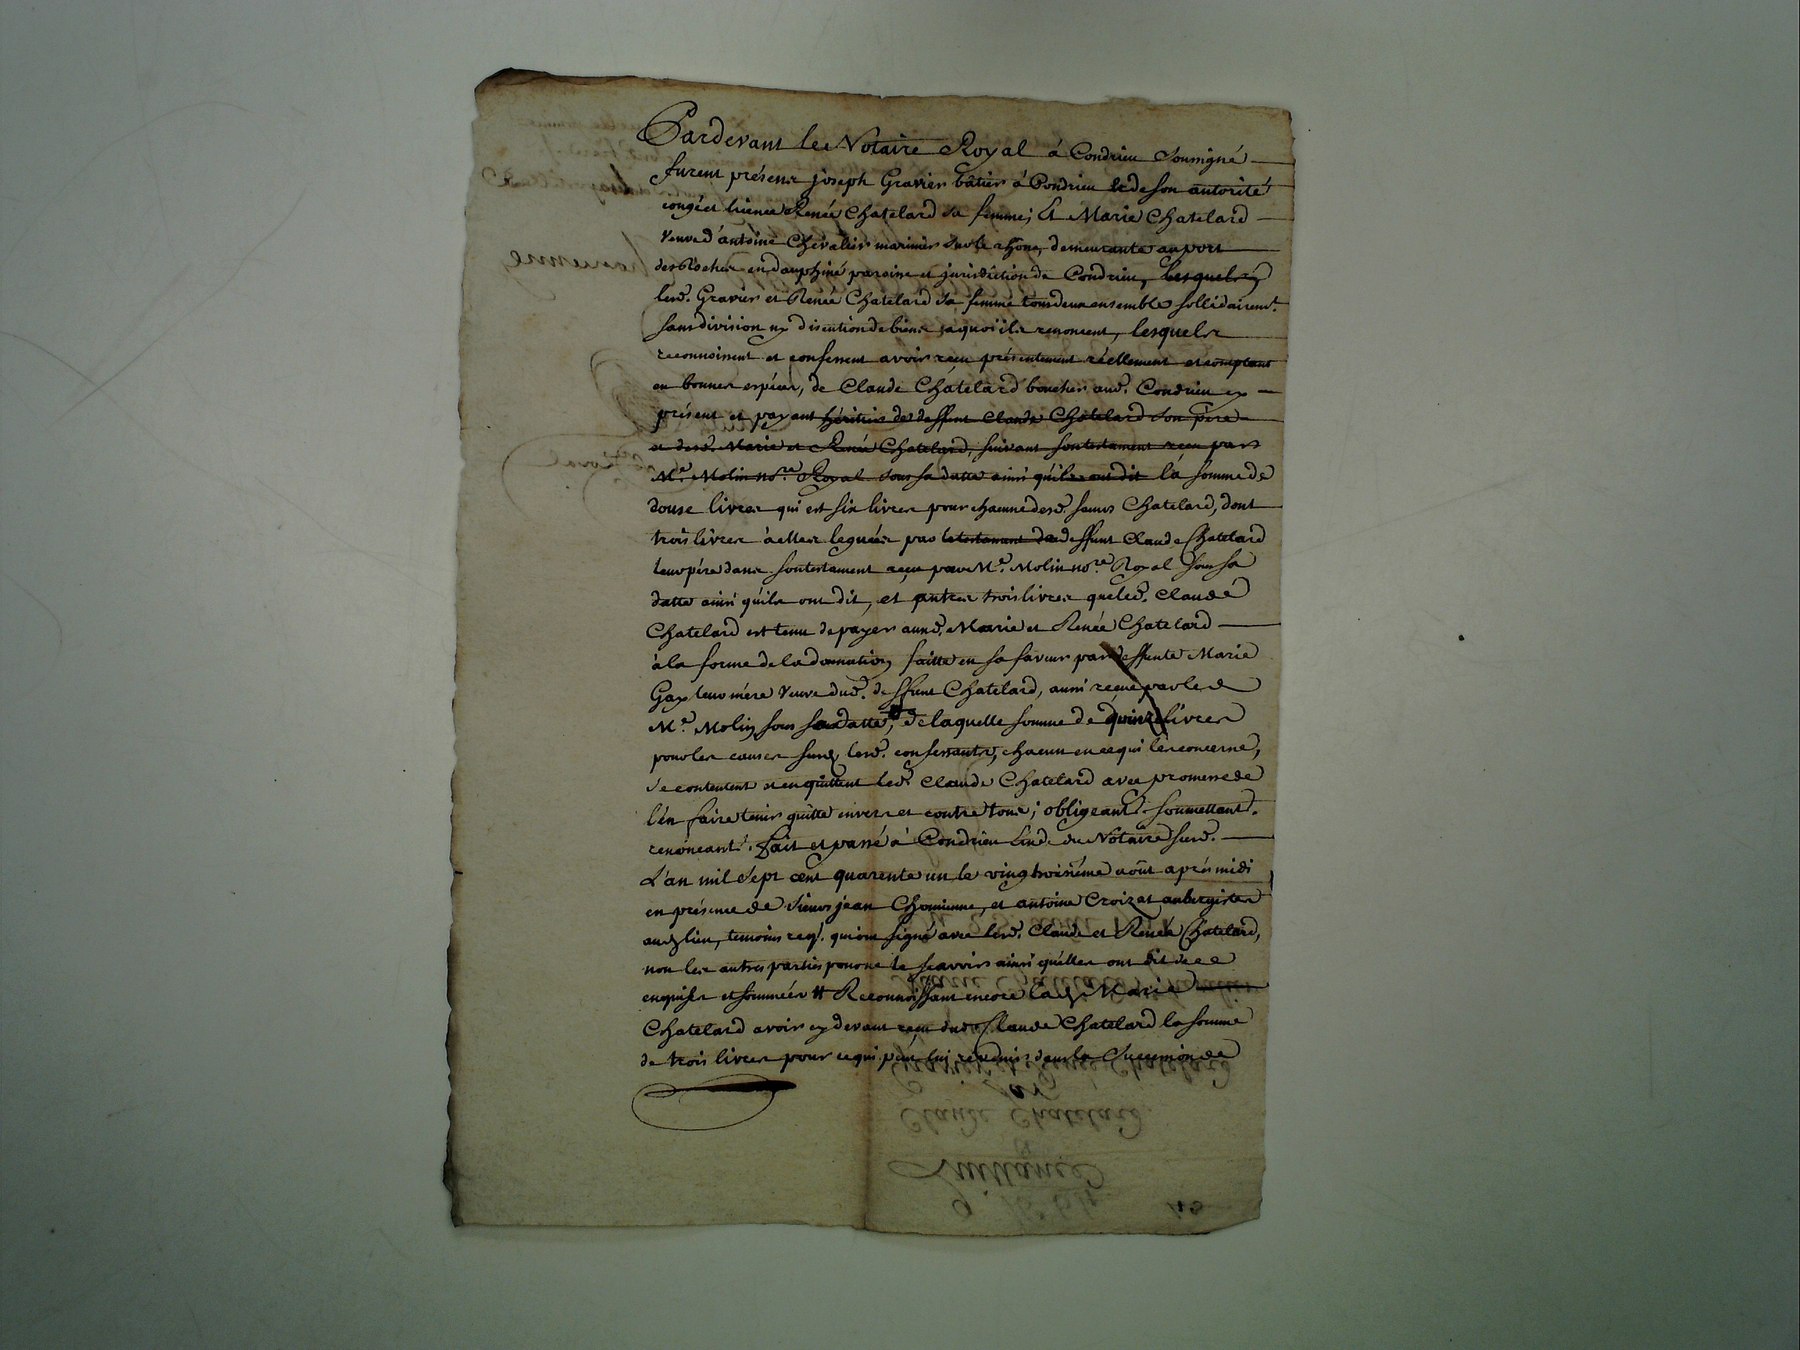 Pardevant le Notaire Royal à Condrieu soussigné
furent présens joseph Gravier bâtier à Condrieu et de son autorité
congé et licence Renée Chatelard sa femme; Et Marie Chatelard
veuve d'antoine Chevalier marinier sur le rhône, demeurante au port
des Roches en dauphiné paroisse et jurisdiction de Condrieu, lesquels
lesd. Gravier et Renée Chatelard sa femme tous deux ensemble sollidairemt.
sans division ny discution de biens à quoi ils renoncent, lesquels
reconnoissent et confessent avoir reçu présentement réellement et comptant
en bonnes espéces, de Claude Chatelard boucher aud. Condrieu cy
présent et payant héritier de deffunt Claude Chatelard son père
et desd. Marie et Renée Chatelard, suivant son testament reçu par
Me. Molin nore. Royal sous sa datte ainsi qu'ils ont dit la somme de
douse livres qui est six livres pour chacune desd. sœurs Chatelard, dont
trois livres à elles leguées par le testament de deffunt Claude Chatelard
leur père dans son testament reçu par Me. Molin nore. Royal sous sa
datte ainsi qu'ils ont dit, et autres trois livres que led. Claude
Chatelard est tenu de payer auxd. Marie et Renée Chatelard
à la forme de la donnation faitte en sa faveur par deffunte Marie
Gay leur mére veuve dud. deffunt Chatelard, aussi reçue par led
Me. Molin sous sa datte, de laquelle somme de livres
pour les causes susd. lesd. confessants, chacun en ce qui les concerne,
se contentent et en quittent led. Claude Chatelard avec promesse de
l'en faire tenir quitte envers et contre tous; obligeant. soumettant.
renonceant. Fait et passé à Condrieu du Notaire susd.
L'an mil sept cent quarente un le vingtroisiéme août aprés midi
en présence de sieurs jean Chomienne, et antoine Croizat aubergistes
aud lieu, temoins req. qui ont signé avec lesd. Claude et Renée Chatelard,
non les autres parties pour ne le sçavoir ainsi qu'elles ont dit de ce
enquises et sommées # Reconnoissant encore lad. Marie
Chatelard avoir cy devant reçu dud. Claude Chatelard la somme
de trois livres pour ce qui peut lui revenir dans la succession de